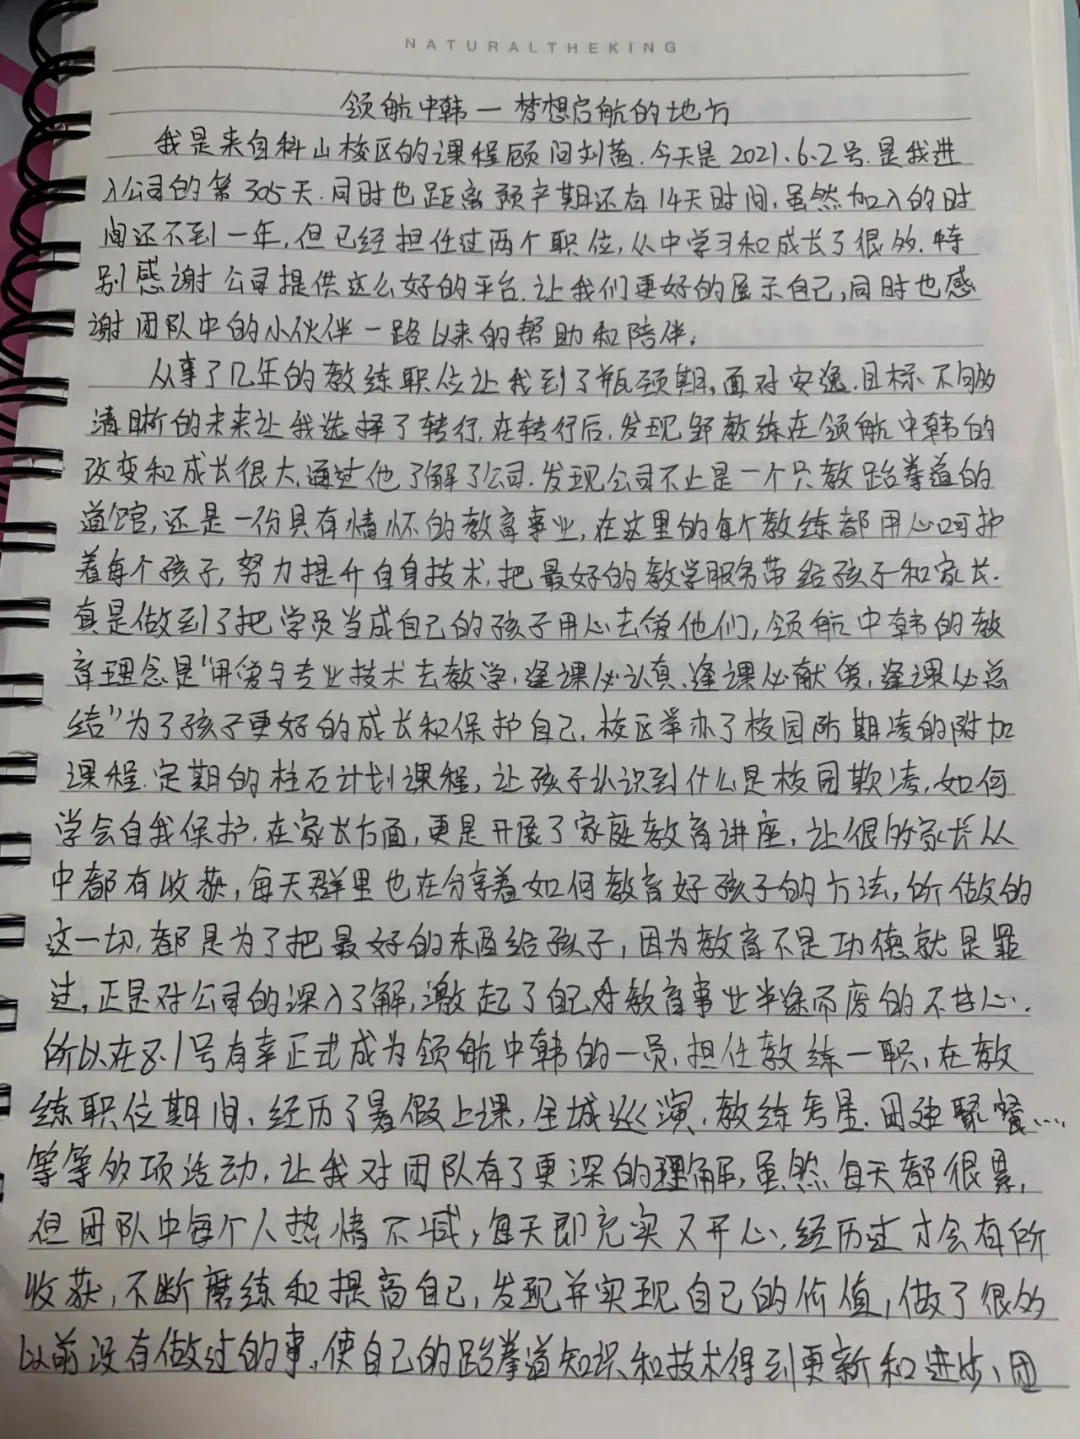 NATURALTHEKING
领航中韩一梦想启航的地方
我是来自科山校区的课程顾问刘茜.今天是2021.6.2号.是我进
入公司的第305天.同时也距离预产期还有14天时间,虽然加入的时
间还不到一年,但已经担任过两个职位,从中学习和成长了很多.特
别感谢公司提供这么好的平台.让我们更好的展示自己,同时也感
谢团队中的小伙伴一路以来的帮助和陪伴.
从事了几年的教练职位让我到了瓶颈期,面对安逸.目标不够
清晰的未来让我选择了转行,在转行后,发现野教练在领航中韩的
改变和成长很大,通过他了解了公司.发现公司不止是一个只教跆拳道的
道馆,还是一份具有情怀的教育事业,在这里的每个教练都用心呵护
着每个孩子,努力提升自身技术,把最好的教学服务带给孩子和家长.
真是做到了把学员当成自己的孩子用心去爱他们,领航中韩的教
育理念是"用爱与专业技术去教学,逢课必认真,逢课必献爱,逢课必总
结"为了孩子更好的成长和保护自己,校区举办了校园防期凌的附加
课程.定期的柱石计划课程,让孩子认识到什么是校园欺凌,如何
学会自我保护.在家长方面,更是开展了家庭教育讲座,让很多家长从
中都有收获,每天群里也在分享着如何教育好孩子的方法,所做的
这一切,都是为了把最好的东西给孩子,因为教育不是功德就是罪
过,正是对公司的深入了解,激起了自己对教育事业半途而废的不甘心.
所以在8.1号有幸正式成为领航中韩的一员,担任教练一职,在教
练职位期间,经历了暑假上课,全城巡演,教练考星.团建聚餐……
等等多项活动,让我对团队有了更深的理解,虽然每天都很累,
但团队中每个人热情不减,每天即充实又开心,经历过才会有所
收获,不断磨练和提高自己,发现并实现自己的价值,做了很多
以前没有做过的事,使自己的跆拳道知识和技术得到更新和进步、团